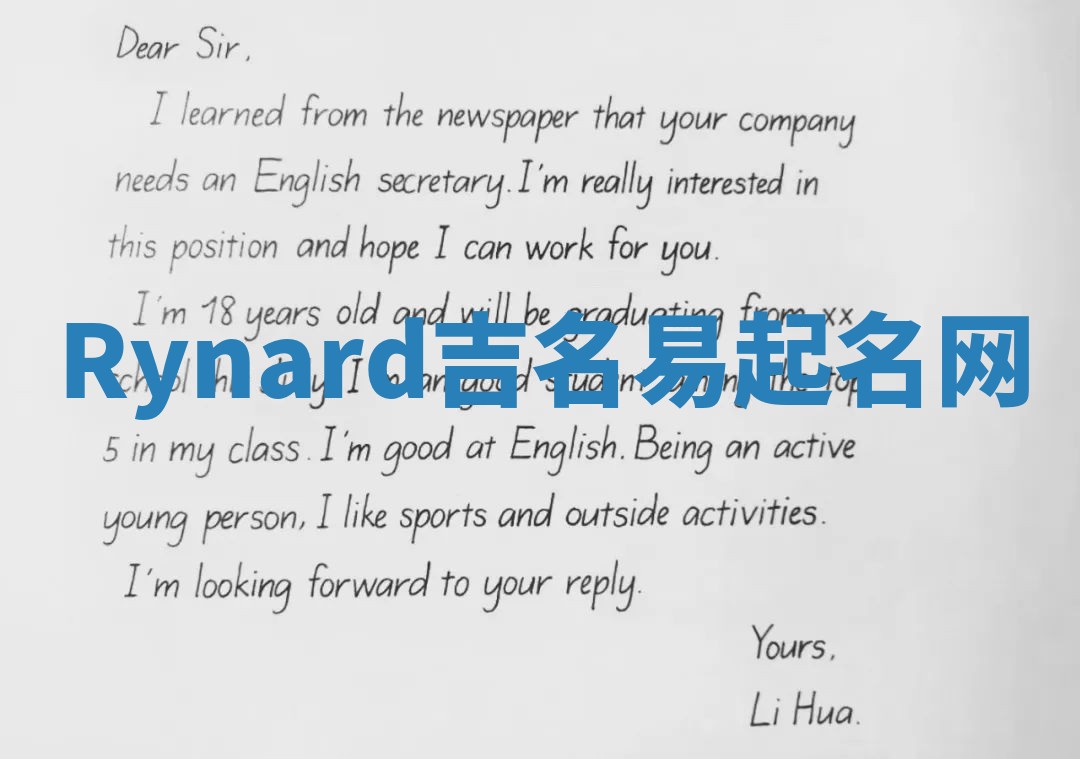 Dear Sir,
I learned from the newspaper that your company
needs an English secretary. I'm really interested in
this position and hope I can work for you.
I'm 18 years old and will be graduating from xx
Rynard吉名易起名网
school July I good student the top
5 in my class. I'm good at English. Being an active
young person, I like sports and outside activities.
I'm looking forward to your reply.
Yours,
Li Hua.